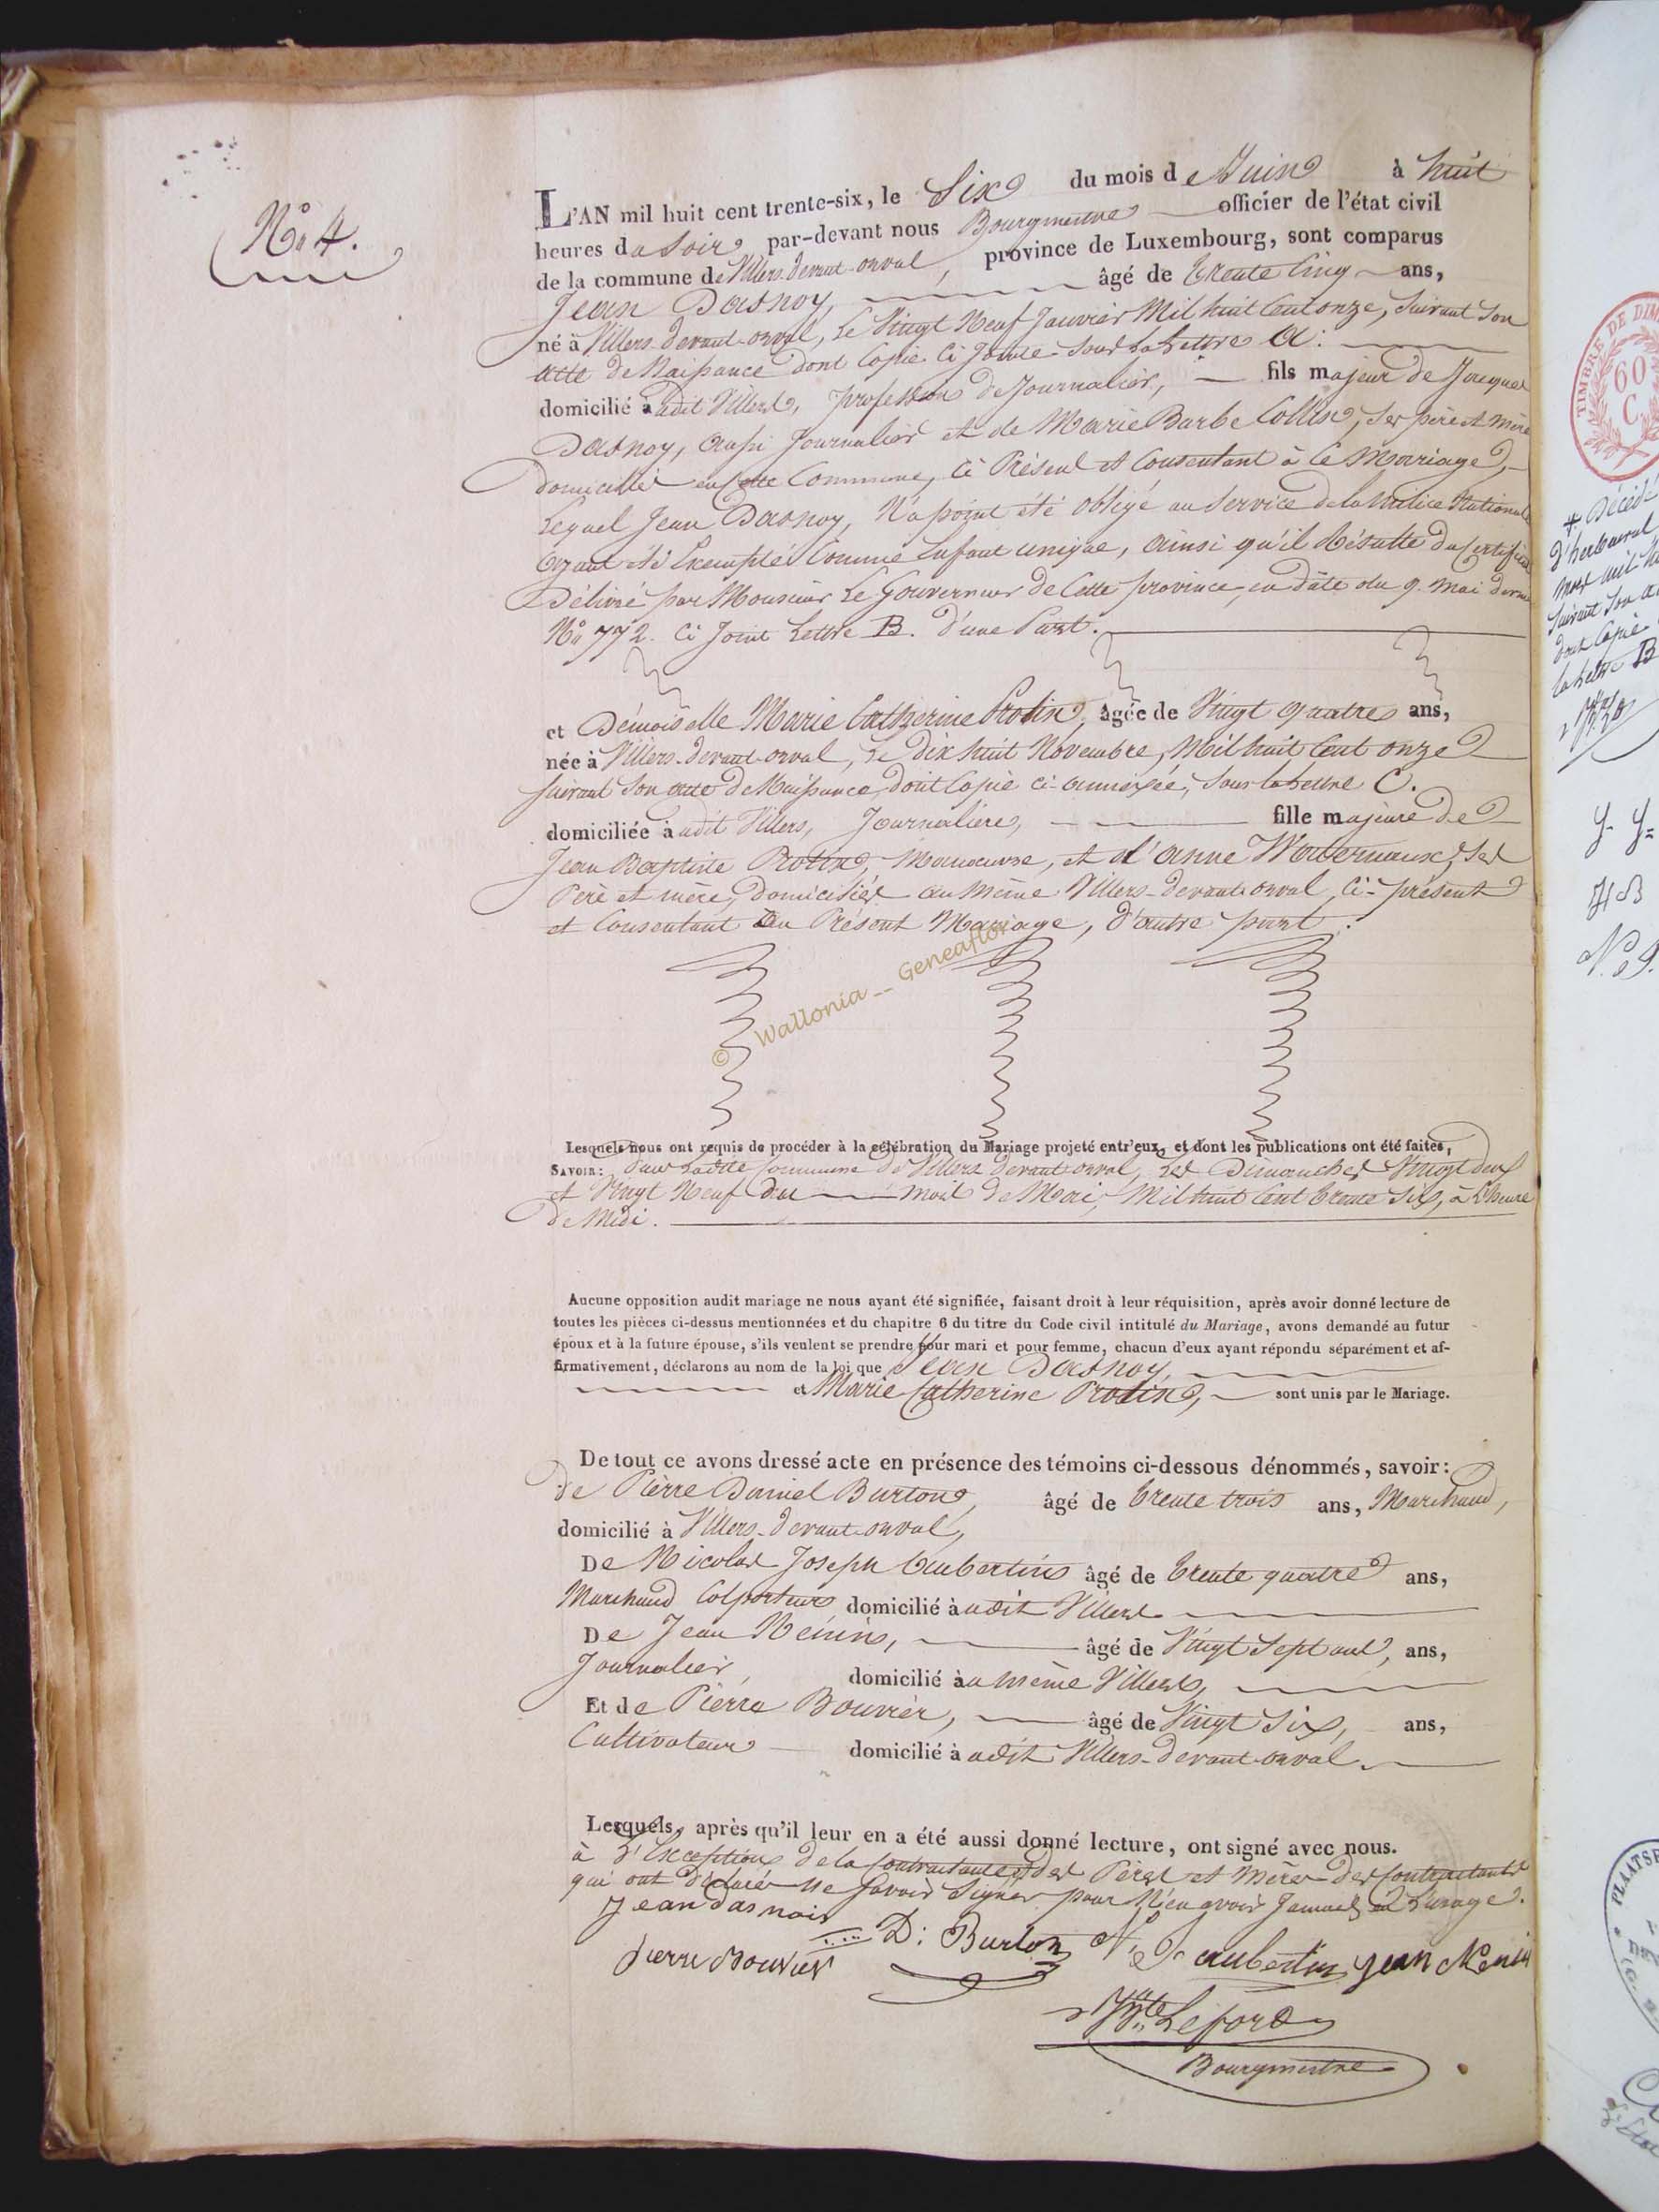 N° 4.
L'AN mil huit cent trente-six, le Six du mois de Juin à huit
heures du Soir par-devant nous Bourgmestre officier de l'état civil
de la commune de Villers-devant-orval, province de Luxembourg, sont comparus
Jean Dasnoy, âgé de trente Cinq ans,
né à Villers-devant-orval, Le Vingt Neuf Janvier Mil huit Cent onze, Suivant Son
acte de Naissance dont Copie Ci Jointe sous La Lettre A.
domicilié audit Villers, profession de Journalier, fils majeur de Jacques
Dasnoy, aussi Journalier et de Marie Barbe Collin, Ses père et mère
domicilié en Cette Commune, Ci Présent et Consentant à Ce Mariage,
Lequel Jean Dasnoy, N'a point été obligé au Service de la Milice Nationale
ayant été Exempté Comme Enfant unique, ainsi qu'il Résulte du Certificat
Délivré par Monsieur Le Gouverneur de Cette province, en date du 9. Mai dernier
N° 772. Ci Joint Lettre B. d'une Part.
et Demoiselle Marie Catherine Protin, âgée de Vingt quatre ans,
née à Villers-devant-orval, Le Dix huit Novembre, Mil huit Cent onze
Suivant Son acte de Naissance, dont Copie ci-annexée, Sous la Lettre C.
domiciliée audit Villers, Journalière, fille majeure de
Jean Baptiste Protin, Manoeuvre, et d'anne Ses
Père et mère, domiciliés au même Villers-devant-orval, Ci-présent
et Consentant au Présent Mariage, d'autre part.
© Wallonia -- Geneaflor
Lesquels nous ont requis de procéder à la célébration du Mariage projeté entr'eux, et dont les publications ont été faites,
SAVOIR: dans Ladite Commune de Villers devant orval, Les Dimanches Vingt deux
et Vingt Neuf du mois de Mai, Mil huit Cent trente Six, à L'heure
de Midi.
Aucune opposition audit mariage ne nous ayant été signifiée, faisant droit à leur réquisition, après avoir donné lecture de
toutes les pièces ci-dessus mentionnées et du chapitre 6 du titre du Code civil intitulé du Mariage, avons demandé au futur
époux et à la future épouse, s'ils veulent se prendre pour mari et pour femme, chacun d'eux ayant répondu séparément et af-
firmativement, déclarons au nom de la loi que Jean Dasnoy,
et Marie Catherine Protin, sont unis par le Mariage.
De tout ce avons dressé acte en présence des témoins ci-dessous dénommés, savoir:
de Pierre Daniel Burton, âgé de trente trois ans, Marchand,
domicilié à Villers-devant-orval,
De Nicolas Joseph aubertin âgé de trente quatre ans,
Marchand Colporteur, domicilié audit Villers
De Jean Nenin, âgé de Vingt Sept ans, ans,
Journalier, domicilié au même Villers,
Et de Pierre Bouvier, âgé de Vingt Six, ans,
Cultivateur domicilié audit Villers-devant-orval.
Lesquels, après qu'il leur en a été aussi donné lecture, ont signé avec nous.
à L'Exception de la Contractante et des Pères et Mères des Contractants
qui ont déclaré Ne Savoir Signer pour N'en avoir Jamais eu L'usage.
Jean dasnois
D: Burton N. J. aubertin Jean Nenin
pierre Bouvier
Leford
Bourgmestre
TIMBRE DE DIM
60
C.
+ Décédé
d'herbeuval
Suivant Son a
dont Copie
la Lettre B
PLAATSE